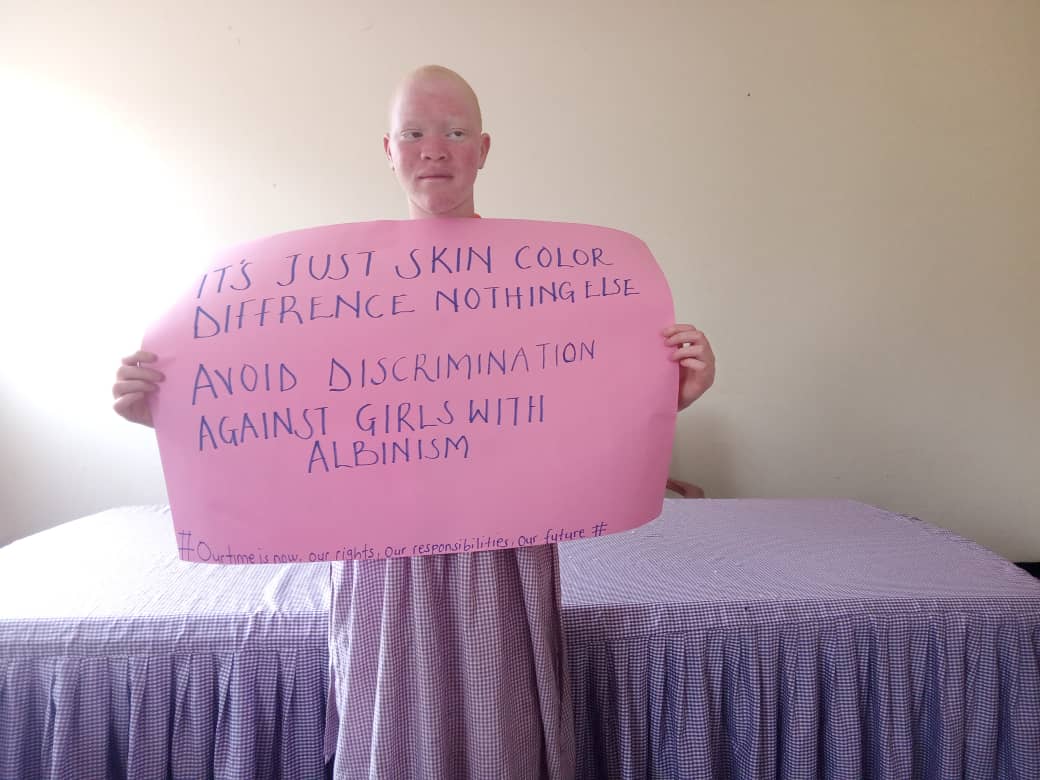 IT'S JUST SKIN COLOR
DIFFRENCE NOTHING ELSE
AVOID DISCRIMINATION
AGAINST GIRLS WITH
ALBINISM
#Our time is now, our rights, Our responsibilities, Our future #